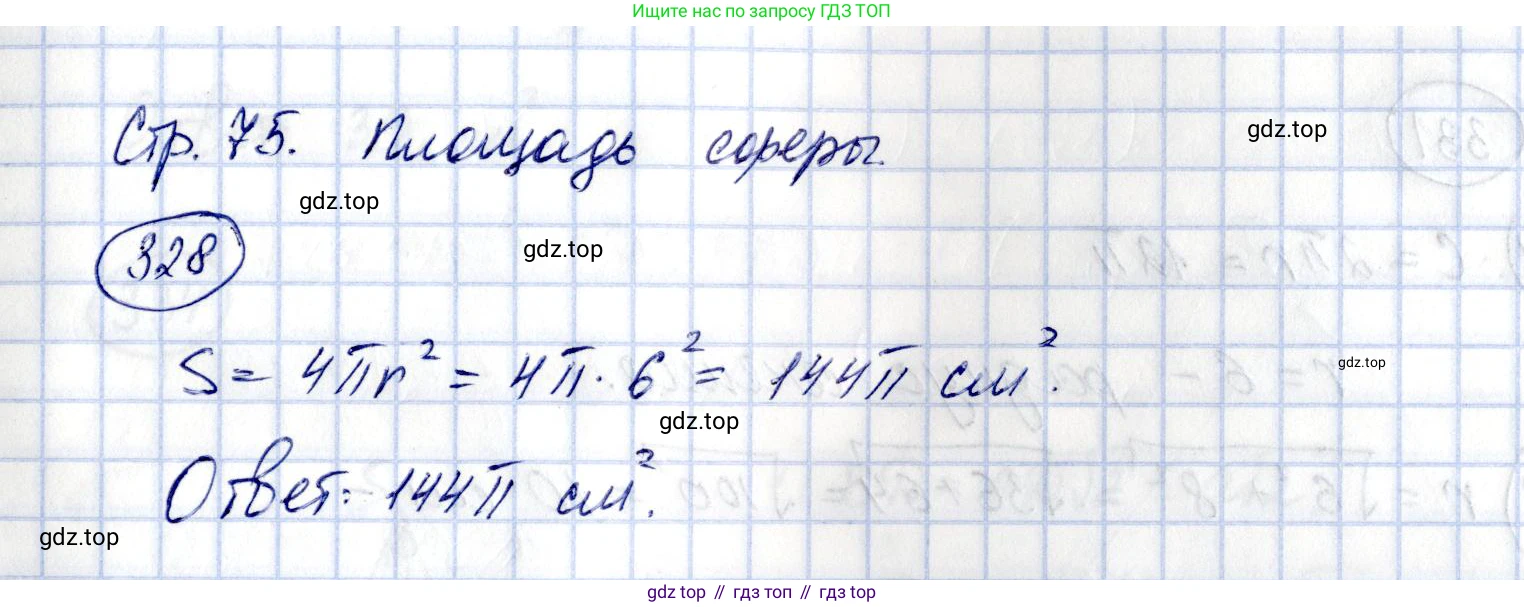 Ищите нас по запросу ГДЗ ТОП
Стр. 75. Площадь сферы.
gdz.top
gdz.top
328
gdz.top
S = 4πr² = 4π · 6² = 144π см².
gdz.top
gdz.top
Ответ: 144π см².
gdz.top
gdz top // гдз топ // гдз top